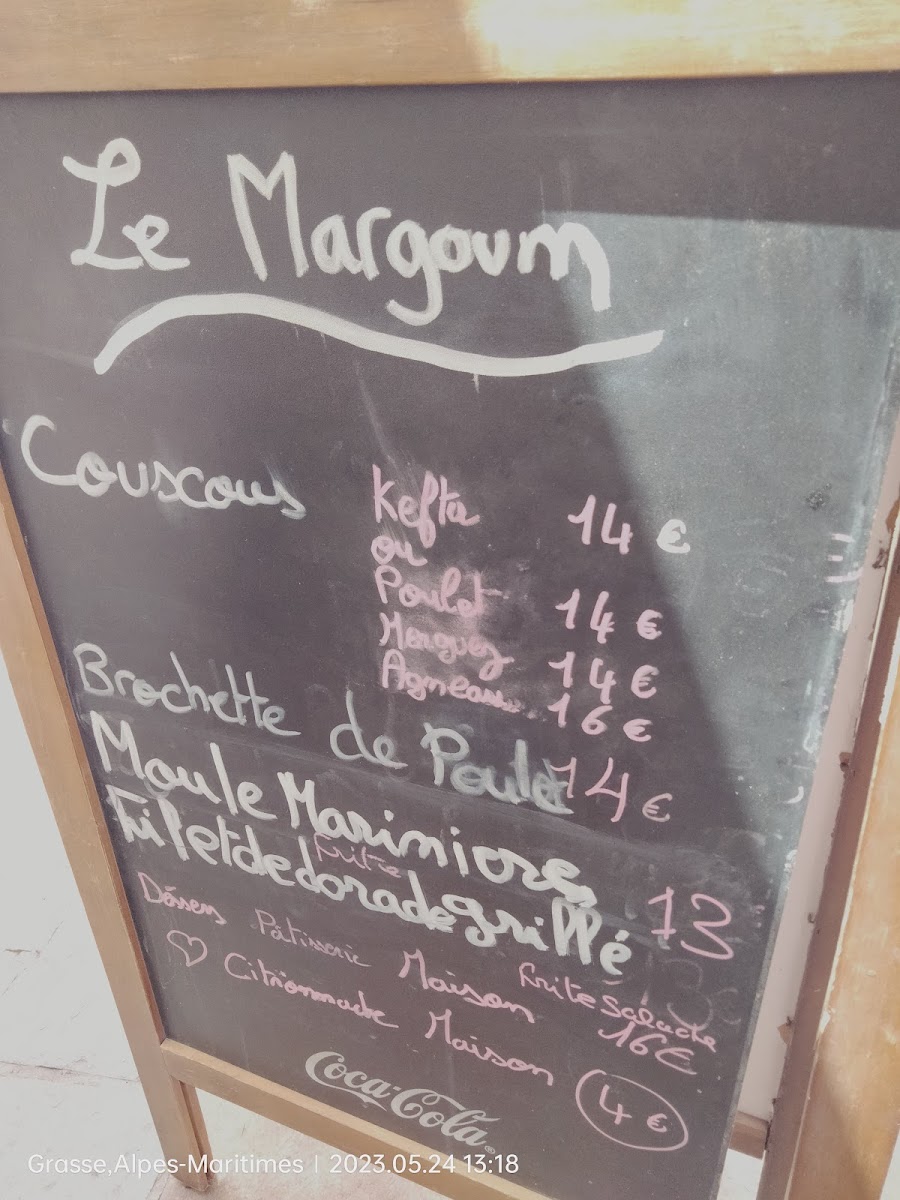 Le Margoum
Couscous
Kefta 14 €
ou
Poulet 14 €
Merguez 14 €
Agneau... 16 €
Brochette de Poulet 14 €
Moule Marinières
Frite 13
Filet de dorade grillé
Frite Salade
16€
Désserts Pâtisserie Maison
Citronnade Maison 4 €
Coca-Cola
Grasse,Alpes-Maritimes | 2023.05.24 13:18